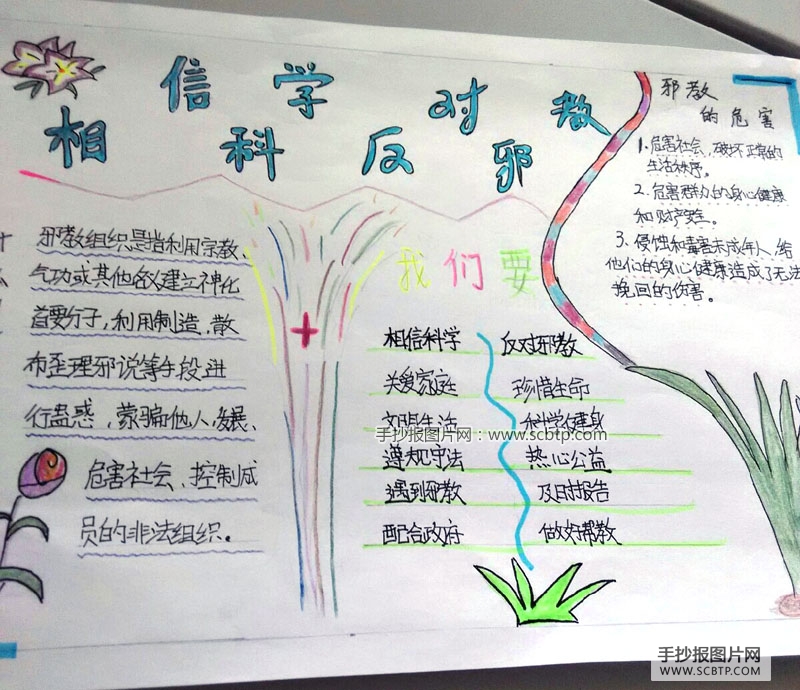 相信科学反对邪教
邪教组织是指利用宗教、
气功或其他名义建立神化
首要分子,利用制造、散
布歪理邪说等手段进
行蛊惑,蒙骗他人,发展、
危害社会、控制成
员的非法组织。
我们要
相信科学 反对邪教
关爱家庭 珍惜生命
文明生活 科学健身
遵规守法 热心公益
遇到邪教 及时报告
配合政府 做好帮教
邪教
的危害
1.危害社会,破坏正常的
生活秩序。
2.危害群众的身心健康
和财产安全。
3.侵蚀和毒害未成年人,给
他们的身心健康造成了无法
挽回的伤害。
手抄报图片网:www.scbtp.com
手抄报图片网
WWW.SCBTP.COM